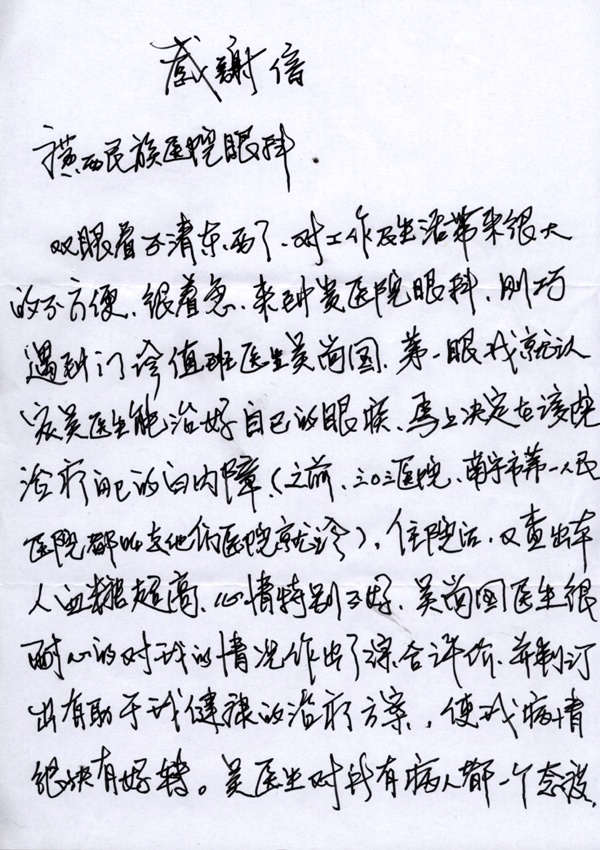 感謝信
广西民族医院眼科.
双眼看不清东西了、对工作及生活带来很大
的不方便、很着急、来到贵医院眼科、刚巧
遇到门诊值班医生吴尚国、第一眼我就认
定吴医生能治好自己的眼疾、马上决定在该院
治疗自己的白内障、(之前、三0三医院、南宁市第一人民
医院都叫去他们医院就诊)、住院后、又查出本
人血糖超高、心情特别不好、吴尚国医生很
耐心的对我的情况作出了综合评价、并制订
出有助于我健康的治疗方案、使我病情
很快有好转。吴医生对所有病人都一个态度、